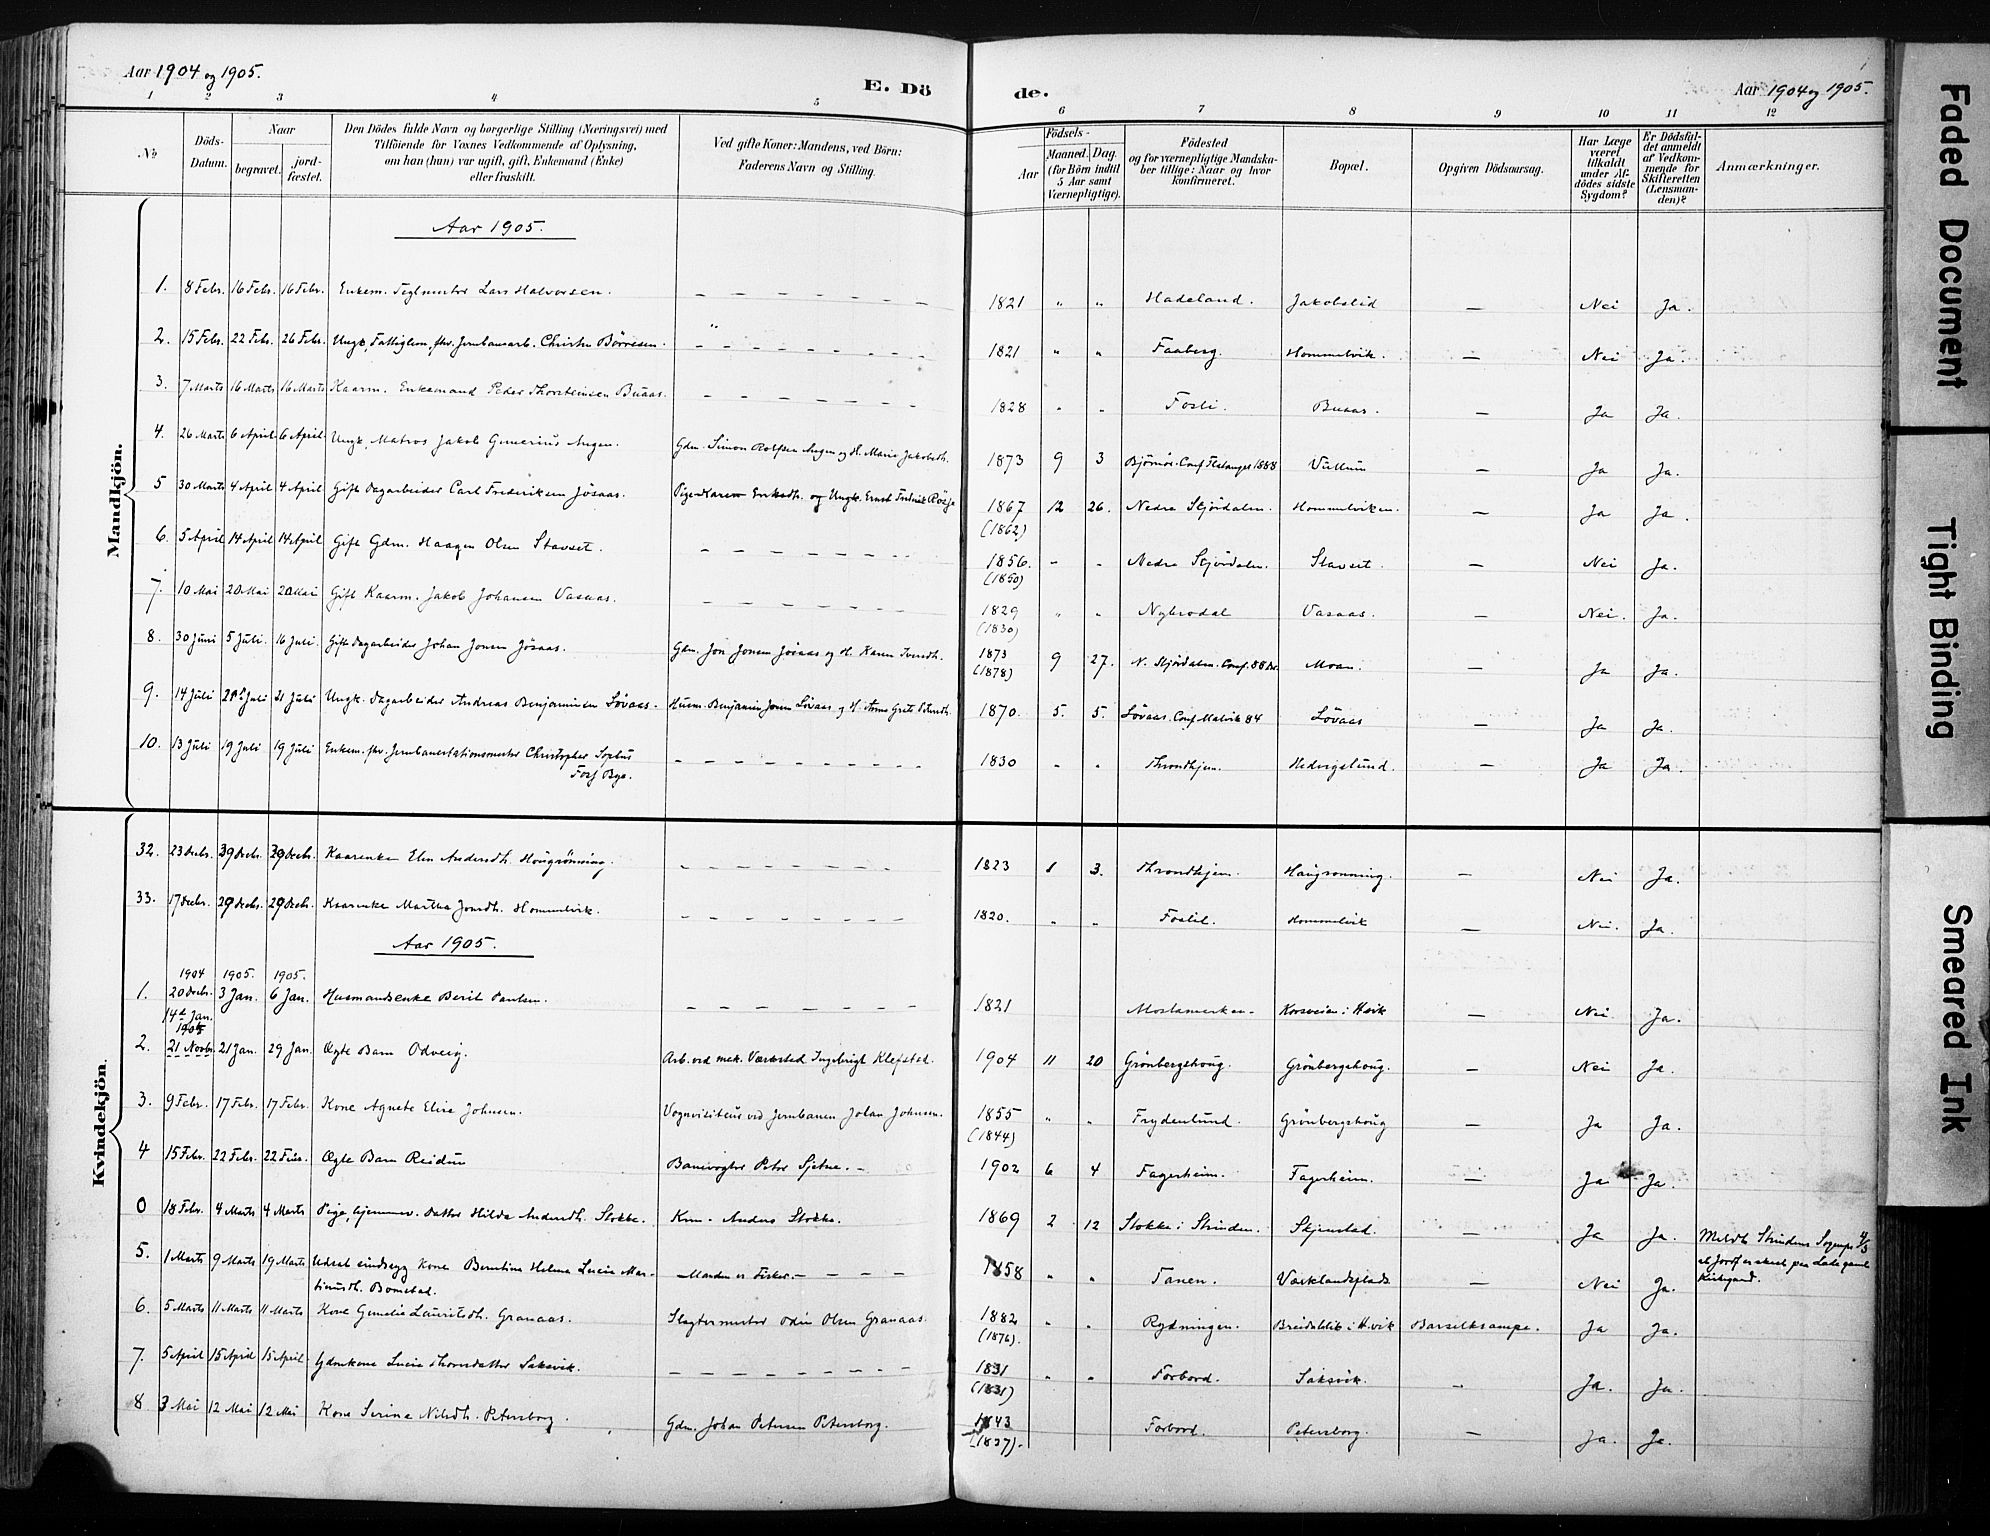 Aar 1904 og 1905.
E. Dö
de.
Aar 1904 og 1905.
1 2 3 4 5 6 7 8 9 10 11 12
No
Döds-Datum.
Naar
begravet.
jord-fæstet.
Den Dödes fulde Navn og borgerlige Stilling (Næringsvei) med
Tilföiende for Voxnes Vedkommende af Oplysning,
om han (hun) var ugift, gift, Enkemand (Enke)
eller fraskilt.
Ved gifte Koner: Mandens, ved Börn:
Faderens Navn og Stilling.
Födsels-
Aar
Maaned. Dag.
(for Börn indtil
5 Aar samt
Værnepligtige).
Födested
og for værnepligtige Mandska-
ber tillige: Naar og hvor
konfirmeret.
Bopæl.
Opgiven Dödsaarsag.
Har Læge
været
tilkaldt
under Af-
dödes sidste
Sygdom?
Er Dödsfal-
det anmeldt
af Vedkom-
mende for
Skifteretten
(Lensman-
den)?
Anmærkninger.
Mandkjön.
Aar 1905.
1. 8 Febr. 16 Febr. 16 Febr. Enkem. Teglmester Lars Halvorsen. 1821 " " Hadeland. Jakobslid — Nei Ja.
2. 15 Febr. 22 Febr. 26 Febr. Ungk, Fattiglem, fhv. Jernbanearb. Christen Börresen. " 1821 " " Faaberg. Hommelvik. — Nei Ja.
3. 7 Marts 16 Marts 16 Marts Kaarm. Enkemand Peder Thorsteinsen Buaas. 1828 " " Fosli. Buaas. — Ja Ja.
4. 26 Marts 6 April 6 April Ungk. Matros Jakob Gunerius Augen. Gdm. Simon Rolfsen Augen og H. Marie Jakobsdh. 1873 9 3 Björnör. Conf Flatanger 1888 Vullum — Ja Ja.
5 30 Marts 4 April 4 April Gift Dagarbeider Carl Frederiksen Jösaas. Pige Karen Eriksdh. og Ungk. Ernst Fredrik 1867 (1862) 12 26. Nedre Stjördalen. Hommelviken. — Ja Ja.
6. 5 April 14 April 14 April Gift Gdm. Haagen Olsen Stavset. 1856. (1850) " " Nedre Stjördalen. Stavset. — Nei Ja.
7. 10 Mai 20 Mai 20 Mai Gift Kaarm. Jakob Johansen Vasaas. 1829 (1830) " " Nybrodal Vasaas. — Nei. Ja.
8. 30 Juni 5 Juli. 16 Juli. Gift Dagarbeider Johan Jonsen Jösaas. Gdm. Jon Jonsen Jösaas og H. Karen Iversdh. 1873 (1878) 9 27. N. Stjördalen. Conf. 88 Moan. — Ja Ja.
9. 14 Juli 21 Juli 21 Juli Ungk. Dagarbeider Andreas Benjaminsen Lövaas. Husm. Benjamin Jonsen Lövaas og H. Anne Grete 1870. 5. 5. Lövaas. Conf Malvik 84 Lövaas — Ja Ja.
10. 13 Juli 19 Juli 19 Juli Enkem. fhv. Jernbanestationsmester Christopher Sophus
Bye. 1830 " " Throndhjem. Hedvigslund. — Ja Ja.
Kvindekjön.
32. 23 Decbr. 29 Decbr. 29 Decbr. Kaarenke Elen Andersdh. Hougrönning. 1823 1 3. Throndhjem. Haugronning. — Nei Ja.
33. 17 Decbr. 29 Decbr. 29 Decbr. Kaarenke Martha Jonsdh. Hommelvik. 1820. " " Foslil. Hommelvik — Nei. Ja.
Aar 1905.
1904 1905. 1905.
1. 20 Decbr. 3 Jan. 6 Jan. Husmandsenke Berit Paulsen. 1821 Mostamarken. Korsveien i Hvik — Nei Ja.
14de Jan.
1905
2. 21 Novbr. 21 Jan. 29 Jan. Ægte Barn Odveig. Arb. ved mek. Værksted Ingebrigt Klefstad. 1904 11 20 Grönbergshoug. Grönbergshoug. — Nei Ja.
3. 9 Febr. 17 Febr. 17 Febr. Kone Agnete Elise Johnsen. Vognvisiteur ved Jernbanen Johan Johnsen. 1855 (1844) " " Frydenlund. Grönbergshoug — Ja Ja.
4 15 Febr. 22 Febr. 22 Febr. Ægte Barn Reidun Banevogter Peter Sjetne. 1902 6 4 Fagerheim. Fagerheim. — Ja Ja.
0 18 Febr. 4 Marts 4 Marts Pige, hjemmev. Datter Hilda Andersdh. Stokke. Anders Stokke. 1869 2 12 Stokke i Strinden. Skjenstad. — Ja Ja. Meldt Strindens Sogнepr. 4/3
Jordf er skeet paa Lade gamle
Kirkegaard.
5. 1 Marts 9 Marts 19 Marts Udsat sindssyg Kone Berntine Helma Lucie Mar-
tinusdh. Bomstad. — Manden er Fisker. — 1858 " " Tanen. Værklandsplads — Nei Ja.
6. 5 Marts 11 Marts 11 Marts Kone Gunelia Lauritsdh. Granaas. Slagtermester Odin Olsen Granaas. 1882 (1876). " " Rydningen. Breidablik i H.vik Barselkrampe. Ja Ja.
7. 5 April 15 April 15 April Gdmkone Lucie Thomsdatter Saksvik. 1831 (1831) " " Forbord. Saksvik. — Ja. Ja.
8 3 Mai 12 Mai 12 Mai Kone Serine Nilsdh. Petersborg. Gdm. Johan Petersen Petersborg. 1843 (1837). Forbord. Petersborg. — Ja. Ja.
Faded Document
Tight Binding
Smeared Ink